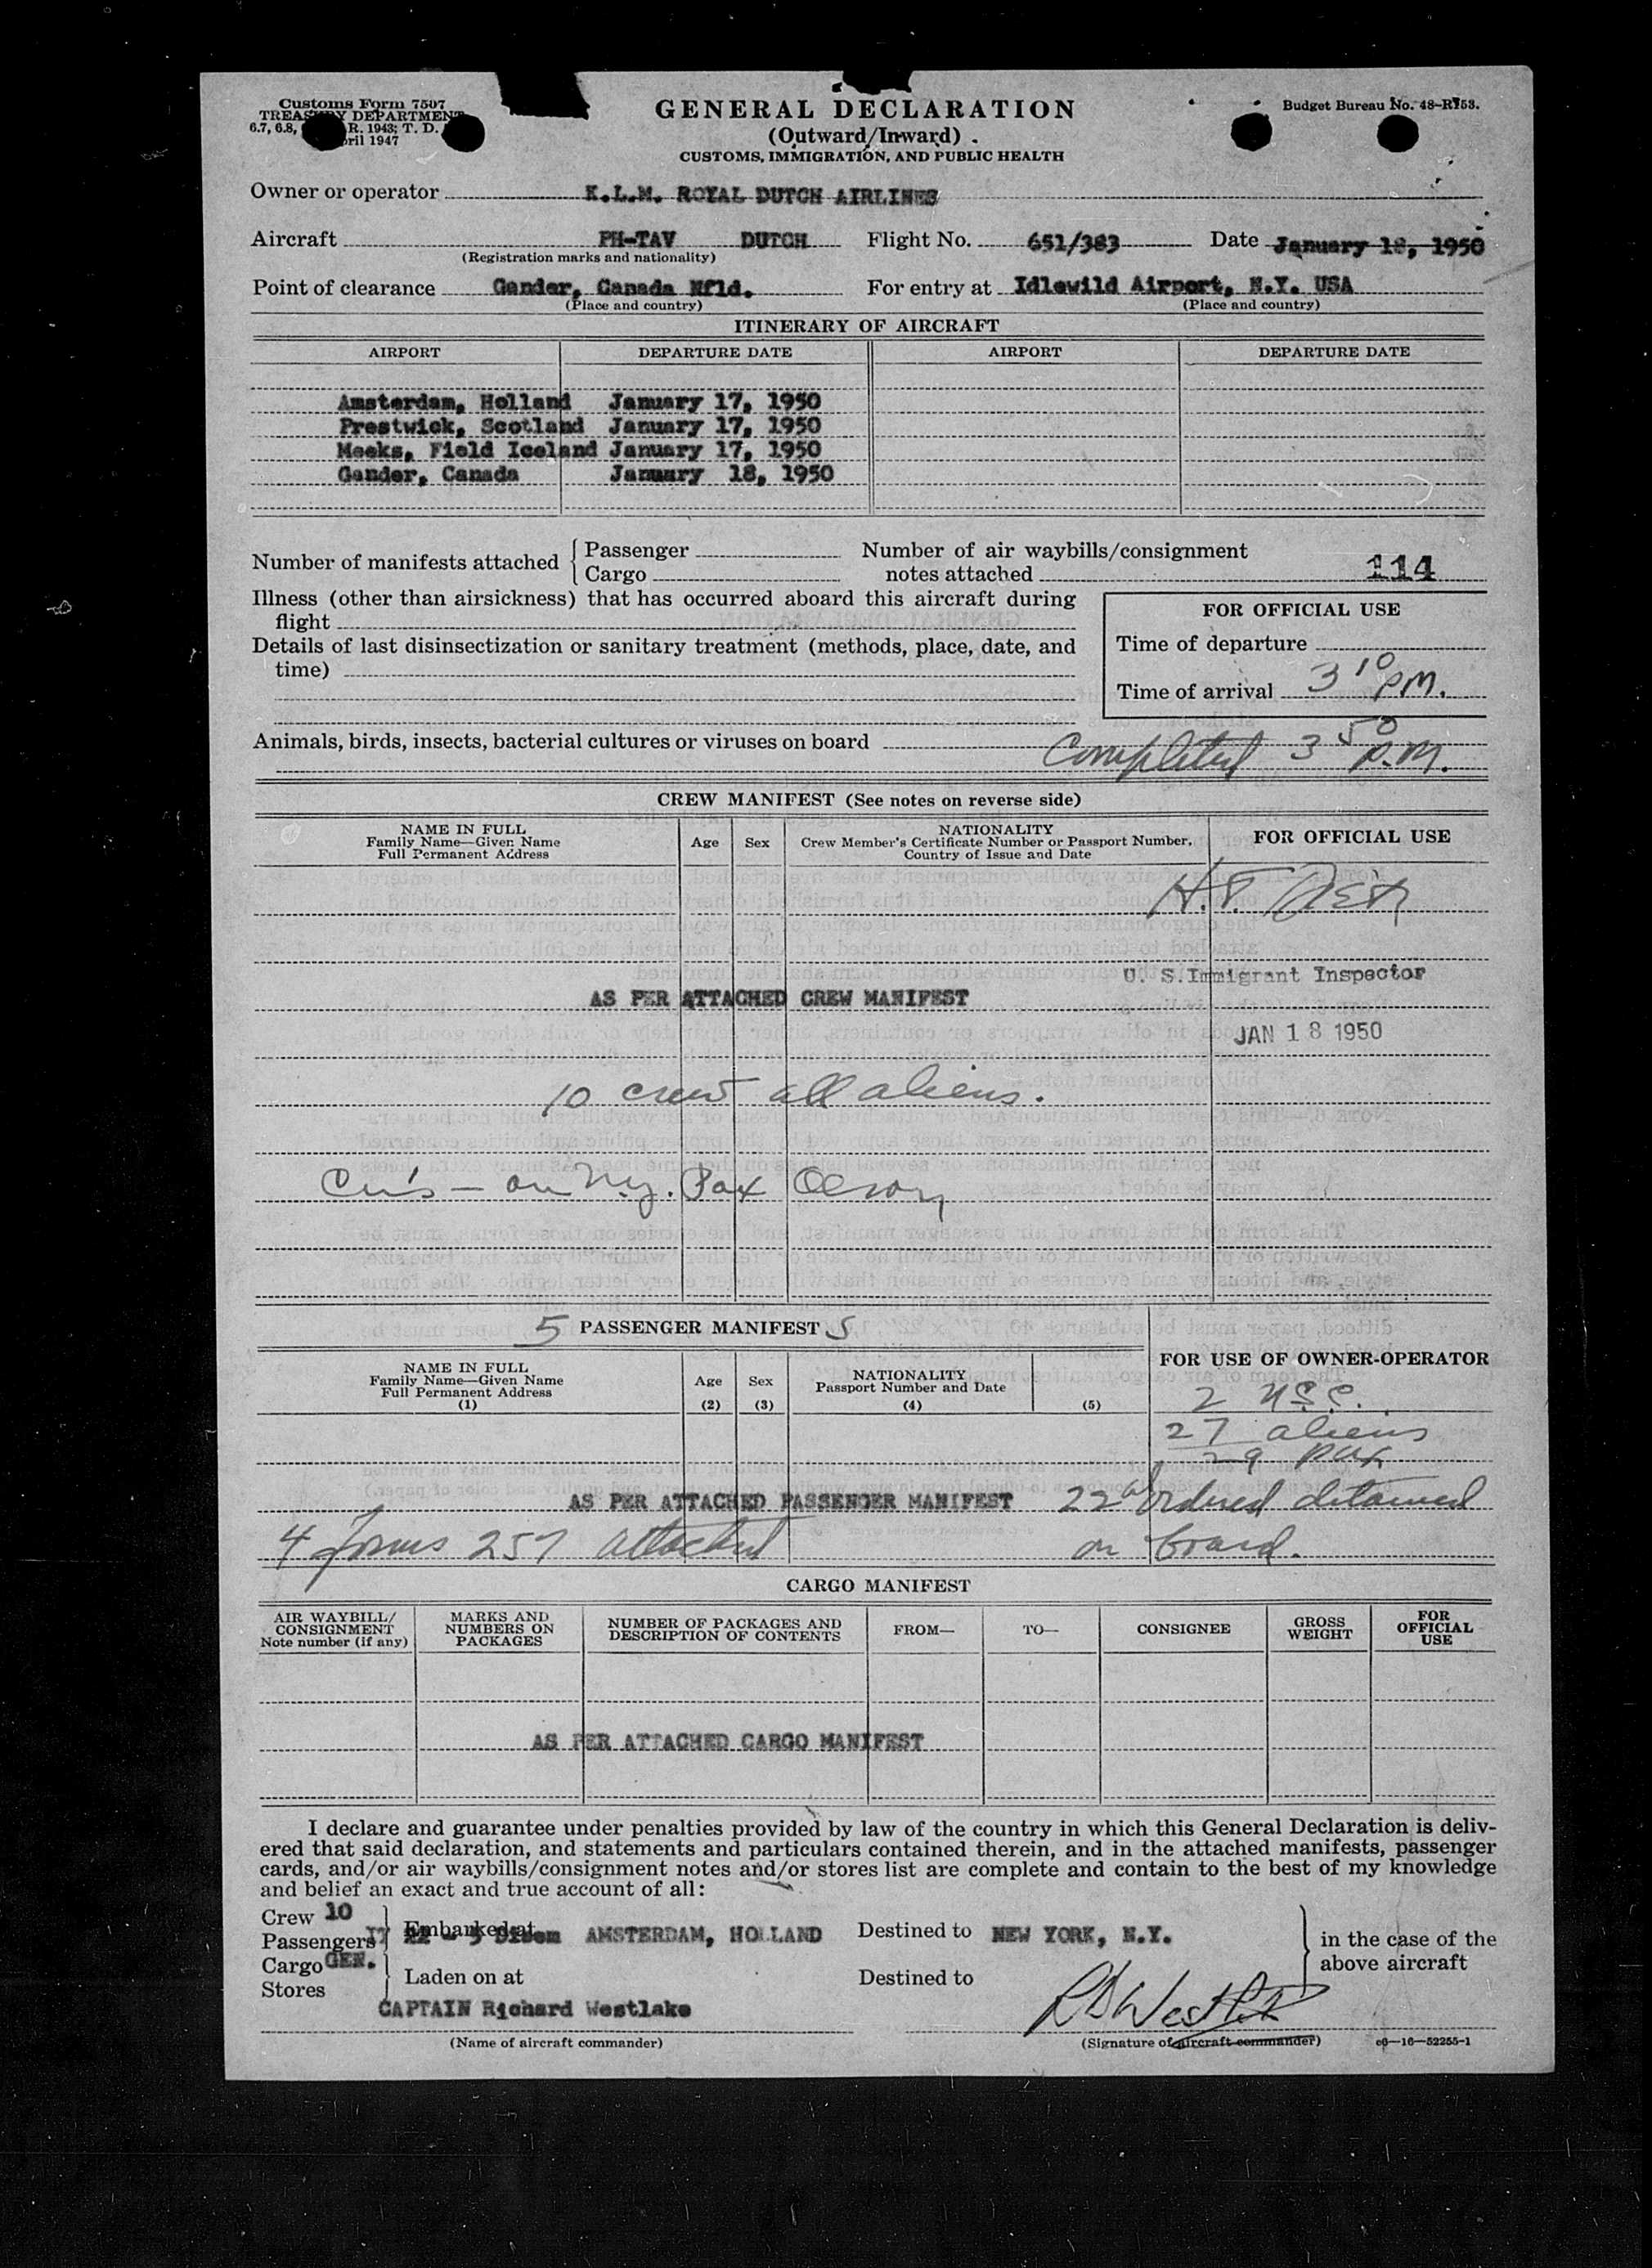 Customs Form 7507
TREASURY DEPARTMENT
6.7, 6.8, R. 1943; T. D.
April 1947
GENERAL DECLARATION
(Outward/Inward)
CUSTOMS, IMMIGRATION, AND PUBLIC HEALTH
Budget Bureau No. 48-R758.
Owner or operator K.L.M. ROYAL DUTCH AIRLINES
Aircraft PH-TAV DUTCH Flight No. 651/383 Date January 18, 1950
(Registration marks and nationality)
Point of clearance Gander, Canada Nfld. For entry at Idlewild Airport, N.Y. USA
(Place and country) (Place and country)
ITINERARY OF AIRCRAFT
AIRPORT DEPARTURE DATE AIRPORT DEPARTURE DATE
Amsterdam, Holland January 17, 1950
Prestwick, Scotland January 17, 1950
Meeks, Field Iceland January 17, 1950
Gander, Canada January 18, 1950
Number of manifests attached { Passenger
Cargo
Number of air waybills/consignment
notes attached 114
Illness (other than airsickness) that has occurred aboard this aircraft during
flight
Details of last disinsectization or sanitary treatment (methods, place, date, and
time)
FOR OFFICIAL USE
Time of departure
Time of arrival 3 10 PM.
Animals, birds, insects, bacterial cultures or viruses on board
Completed 3 50 P.M.
CREW MANIFEST (See notes on reverse side)
NAME IN FULL
Family Name—Given Name
Full Permanent Address
Age
Sex
NATIONALITY
Crew Member's Certificate Number or Passport Number,
Country of Issue and Date
FOR OFFICIAL USE
U. S. Immigrant Inspector
AS PER ATTACHED CREW MANIFEST
JAN 18 1950
10 crew all aliens.
on N.Y. Pax
5 PASSENGER MANIFEST S
NAME IN FULL
Family Name—Given Name
Full Permanent Address
(1)
Age
(2)
Sex
(3)
NATIONALITY
Passport Number and Date
(4)
(5)
FOR USE OF OWNER-OPERATOR
2 USC.
27 aliens
29 pax
AS PER ATTACHED PASSENGER MANIFEST 22 ordered detained
4 forms 257 attached on board.
CARGO MANIFEST
AIR WAYBILL/
CONSIGNMENT
Note number (if any)
MARKS AND
NUMBERS ON
PACKAGES
NUMBER OF PACKAGES AND
DESCRIPTION OF CONTENTS
FROM—
TO—
CONSIGNEE
GROSS
WEIGHT
FOR
OFFICIAL
USE
AS PER ATTACHED CARGO MANIFEST
I declare and guarantee under penalties provided by law of the country in which this General Declaration is deliv-
ered that said declaration, and statements and particulars contained therein, and in the attached manifests, passenger
cards, and/or air waybills/consignment notes and/or stores list are complete and contain to the best of my knowledge
and belief an exact and true account of all:
Crew 10
Passengers Embarked at AMSTERDAM, HOLLAND Destined to NEW YORK, N.Y.
Cargo GEN.
Stores
Laden on at Destined to
in the case of the
above aircraft
CAPTAIN Richard Westlake
(Name of aircraft commander)
RDWestlake
(Signature of aircraft commander)
c6—16—52255-1